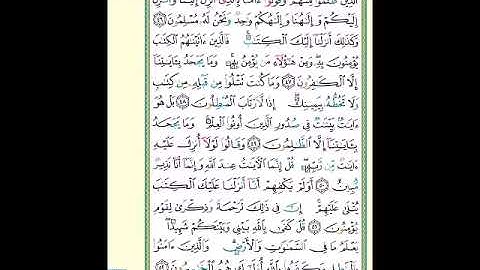 الَّذِينَ ظَلَمُوا مِنْهُمْ وَقُولُوا ءَامَنَّا بِالَّذِي أُنزِلَ إِلَيْنَا وَأُنزِلَ
إِلَيْكُمْ وَإِلَٰهُنَا وَإِلَٰهُكُمْ وَٰحِدٌ وَنَحْنُ لَهُ مُسْلِمُونَ ٤٦
وَكَذَٰلِكَ أَنزَلْنَا إِلَيْكَ الْكِتَٰبَ فَالَّذِينَ ءَاتَيْنَٰهُمُ الْكِتَٰبَ
يُؤْمِنُونَ بِهِ وَمِنْ هَٰؤُلَاءِ مَن يُؤْمِنُ بِهِ وَمَا يَجْحَدُ بِـَٔايَٰتِنَا
إِلَّا الْكَٰفِرُونَ ٤٧ وَمَا كُنتَ تَتْلُوا مِن قَبْلِهِ مِن كِتَٰبٍ
وَلَا تَخُطُّهُ بِيَمِينِكَ إِذًا لَّارْتَابَ الْمُبْطِلُونَ ٤٨ بَلْ هُوَ
ءَايَٰتٌ بَيِّنَٰتٌ فِي صُدُورِ الَّذِينَ أُوتُوا الْعِلْمَ وَمَا يَجْحَدُ
بِـَٔايَٰتِنَا إِلَّا الظَّٰلِمُونَ ٤٩ وَقَالُوا لَوْلَا أُنزِلَ عَلَيْهِ
ءَايَٰتٌ مِّن رَّبِّهِ قُلْ إِنَّمَا الْـَٔايَٰتُ عِندَ اللَّهِ وَإِنَّمَا أَنَا نَذِيرٌ
مُّبِينٌ ٥٠ أَوَلَمْ يَكْفِهِمْ أَنَّا أَنزَلْنَا عَلَيْكَ الْكِتَٰبَ
يُتْلَىٰ عَلَيْهِمْ إِنَّ فِي ذَٰلِكَ لَرَحْمَةً وَذِكْرَىٰ لِقَوْمٍ
يُؤْمِنُونَ ٥١ قُلْ كَفَىٰ بِاللَّهِ بَيْنِي وَبَيْنَكُمْ شَهِيدًا
يَعْلَمُ مَا فِي السَّمَٰوَٰتِ وَالْأَرْضِ وَالَّذِينَ ءَامَنُوا
بِالْبَٰطِلِ وَكَفَرُوا بِاللَّهِ أُولَٰئِكَ هُمُ الْخَٰسِرُونَ ٥٢